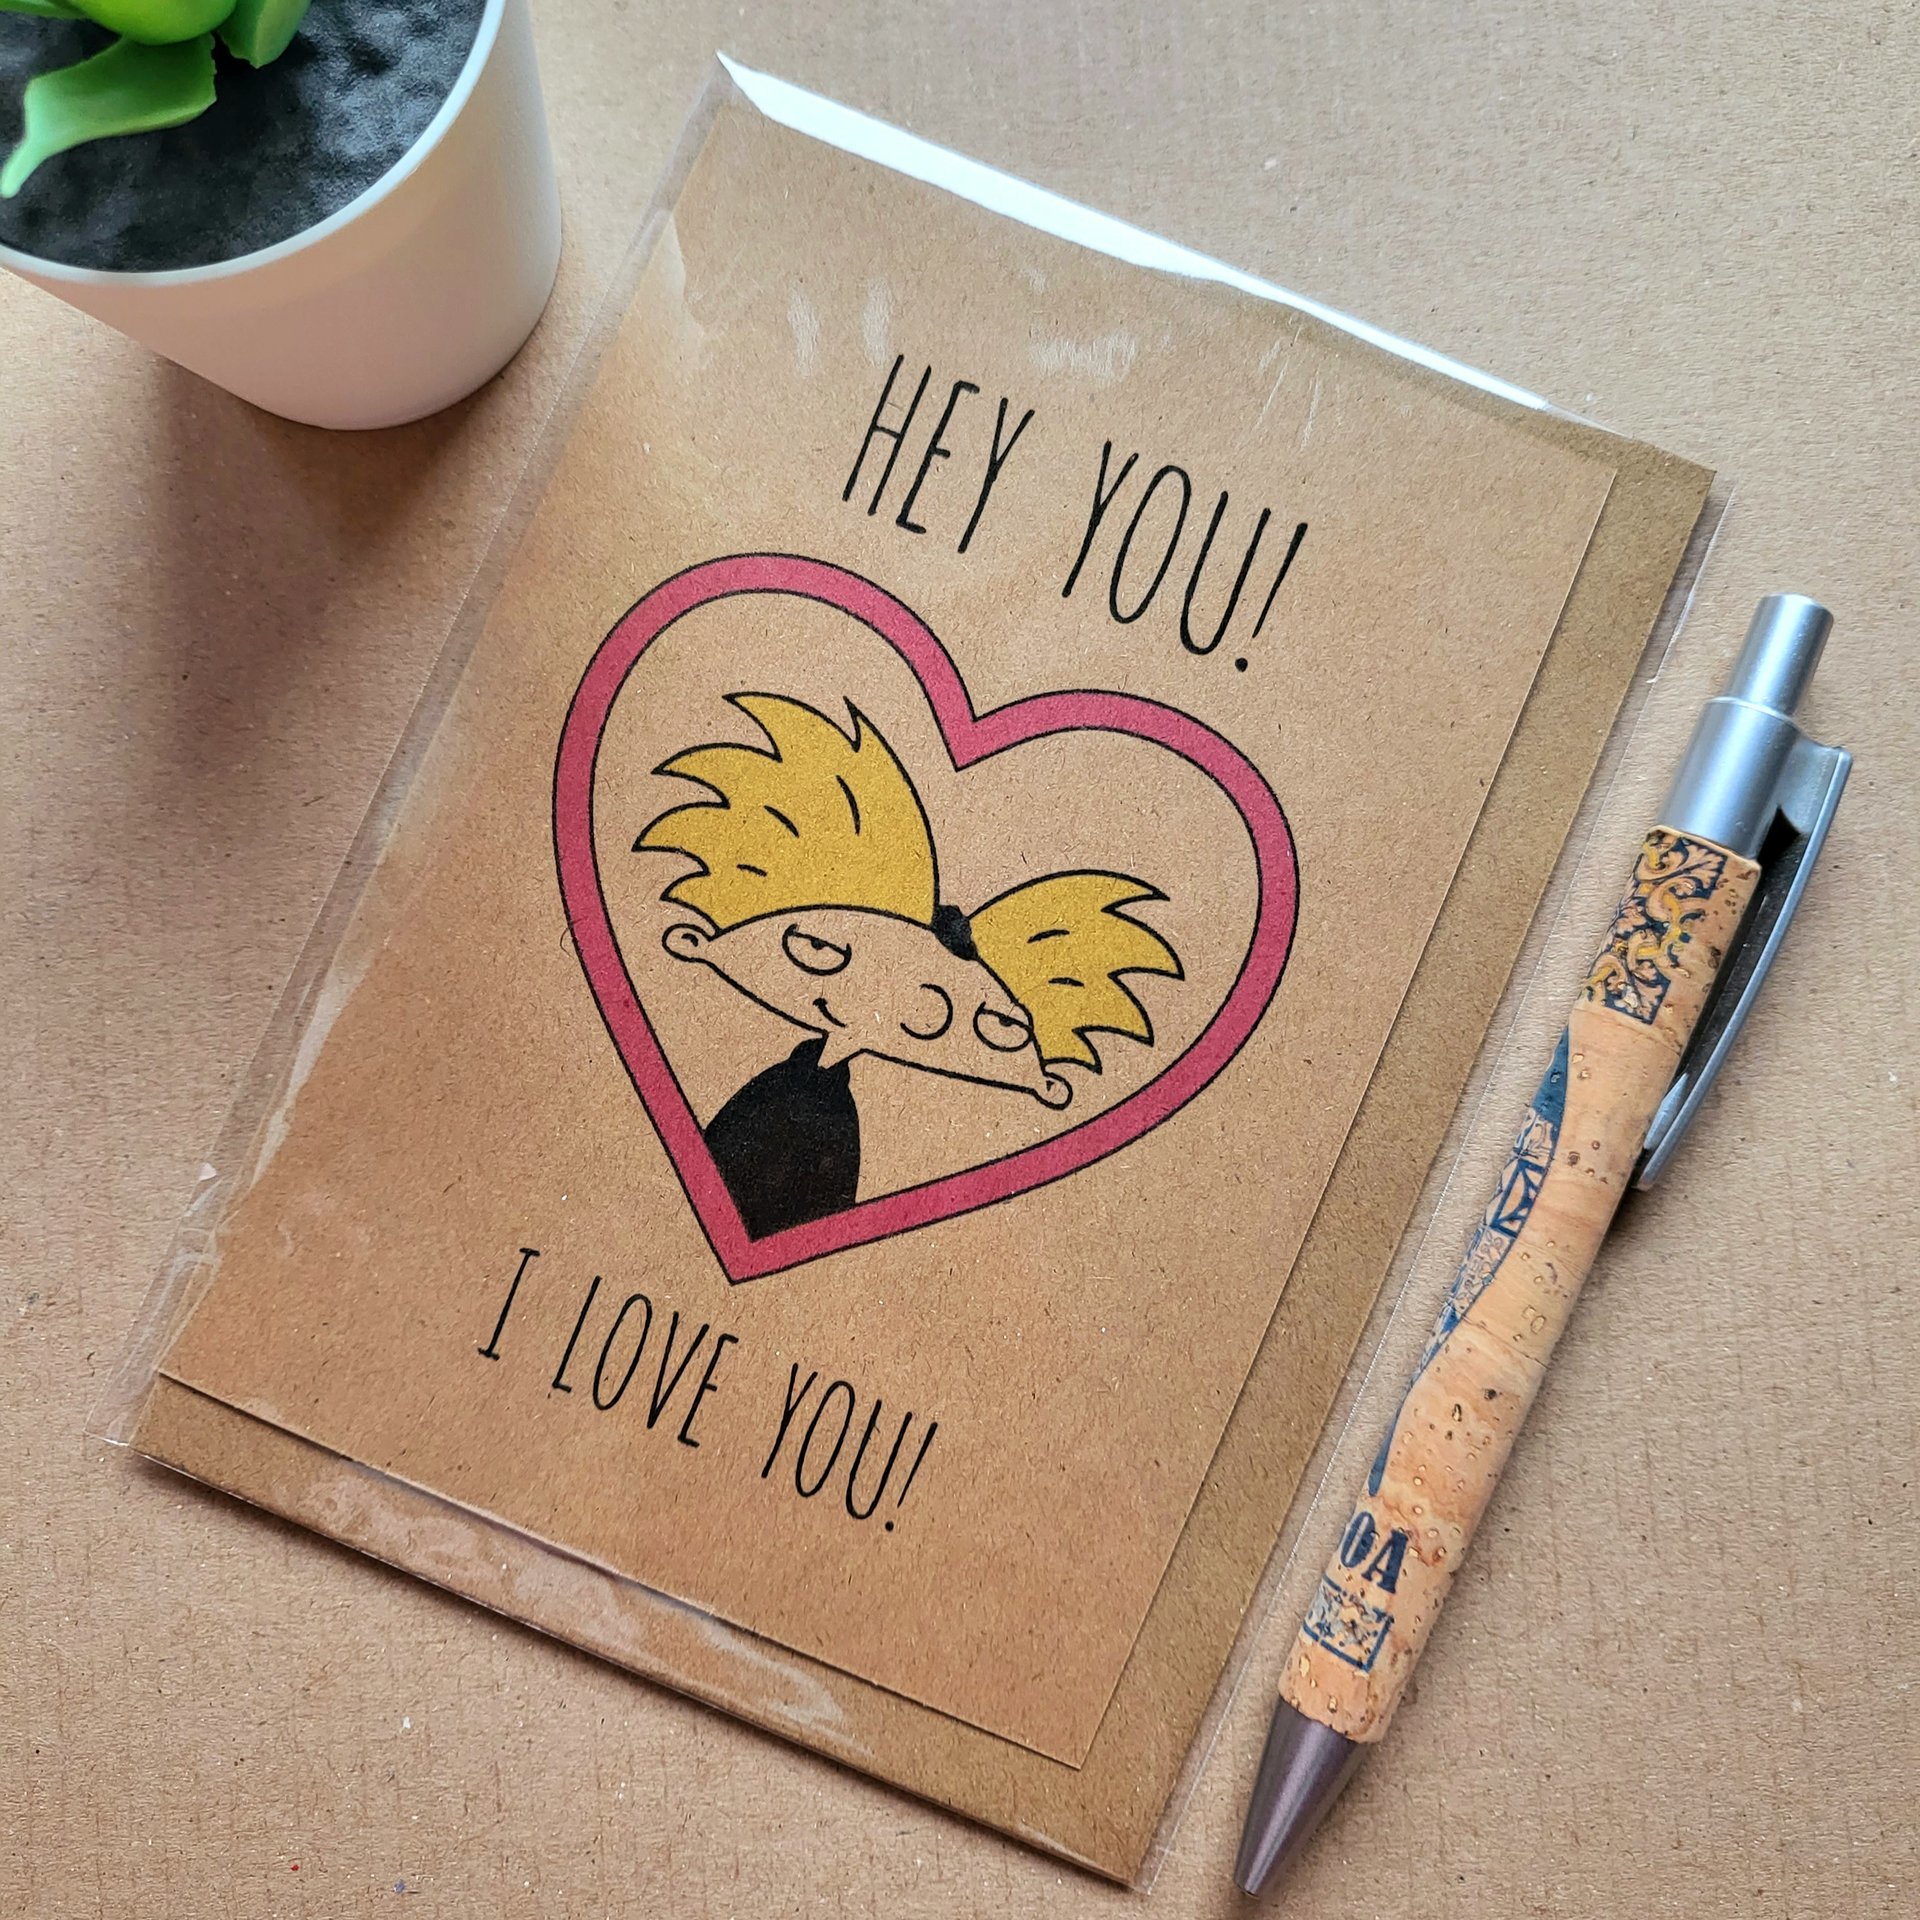 HEY YOU!
I LOVE YOU!
OA